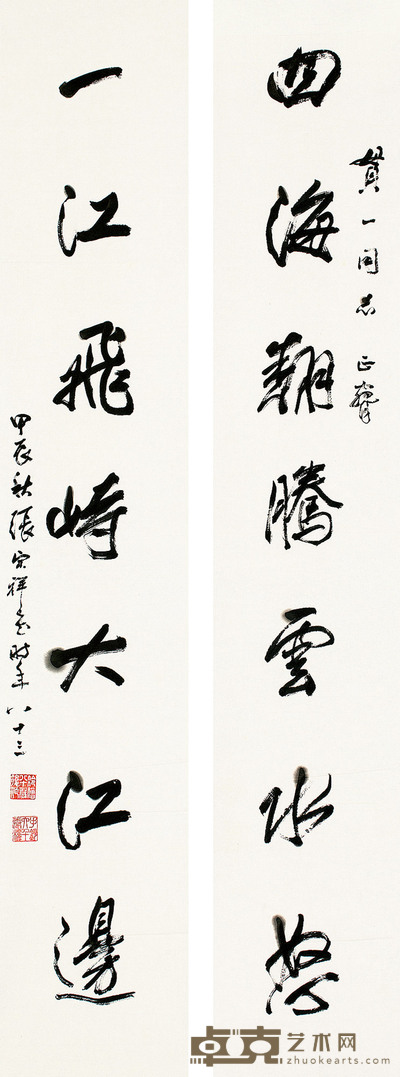 貫一同志 正
四海翻騰雲水怒
一江飛峙大江邊
甲辰秋張宗祥書時年八十三
卓克艺术网
zhuokearts.com